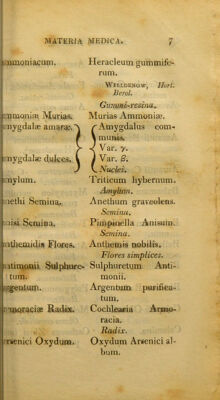 MATERIA MEDICA. 7
mmoniacum. Heracleum gummife-
rum.
WILLDENOW, Hort.
Berol.
Gummi-resina.
mmoniæ Murias. Murias Ammoniæ.
mygdalæ amaræ. Amygdalus com-
munis.
Var. γ.
mygdalæ dulces. Var. β.
Nuclei.
mylum. Triticum hybernum.
Amylum.
nethi Semina. Anethum graveolens.
Semina.
nisi Semina. Pimpinella Anisum.
Semina.
nthemidis Flores. Anthemis nobilis.
Flores simplices.
ntimonii Sulphure- Sulphuretum Anti-
tum. monii.
rgentum. Argentum purifica-
tum.
rmoraciæ Radix. Cochlearia Armo-
racia.
Radix.
rsenici Oxydum. Oxydum Arsenici al-
bum.